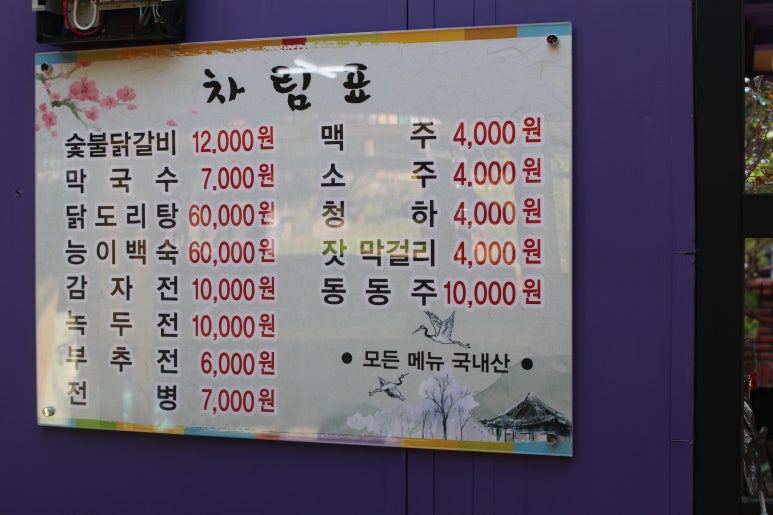 차림표
숯불닭갈비 12,000원
막국수 7,000원
닭도리탕 60,000원
능이백숙 60,000원
감자전 10,000원
녹두전 10,000원
부추전 6,000원
전병 7,000원
맥주 4,000원
소주 4,000원
청하 4,000원
잣막걸리 4,000원
동동주 10,000원
● 모든 메뉴 국내산 ●